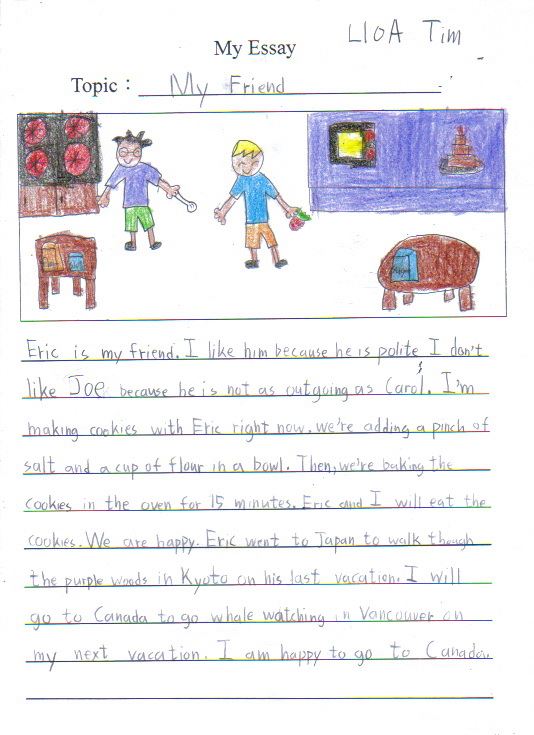 L10A Tim
My Essay
Topic : My Friend
Eric is my friend. I like him because he is polite I don't
like Joe because he is not as outgoing as Carol. I'm
making cookies with Eric right now. we're adding a pinch of
salt and a cup of flour in a bowl. Then, we're baking the
cookies in the oven for 15 minutes. Eric and I will eat the
cookies. We are happy. Eric went to Japan to walk though
the purple woods in Kyoto on his last vacation. I will
go to Canada to go whale watching in Vancouver on
my next vacation. I am happy to go to Canada.